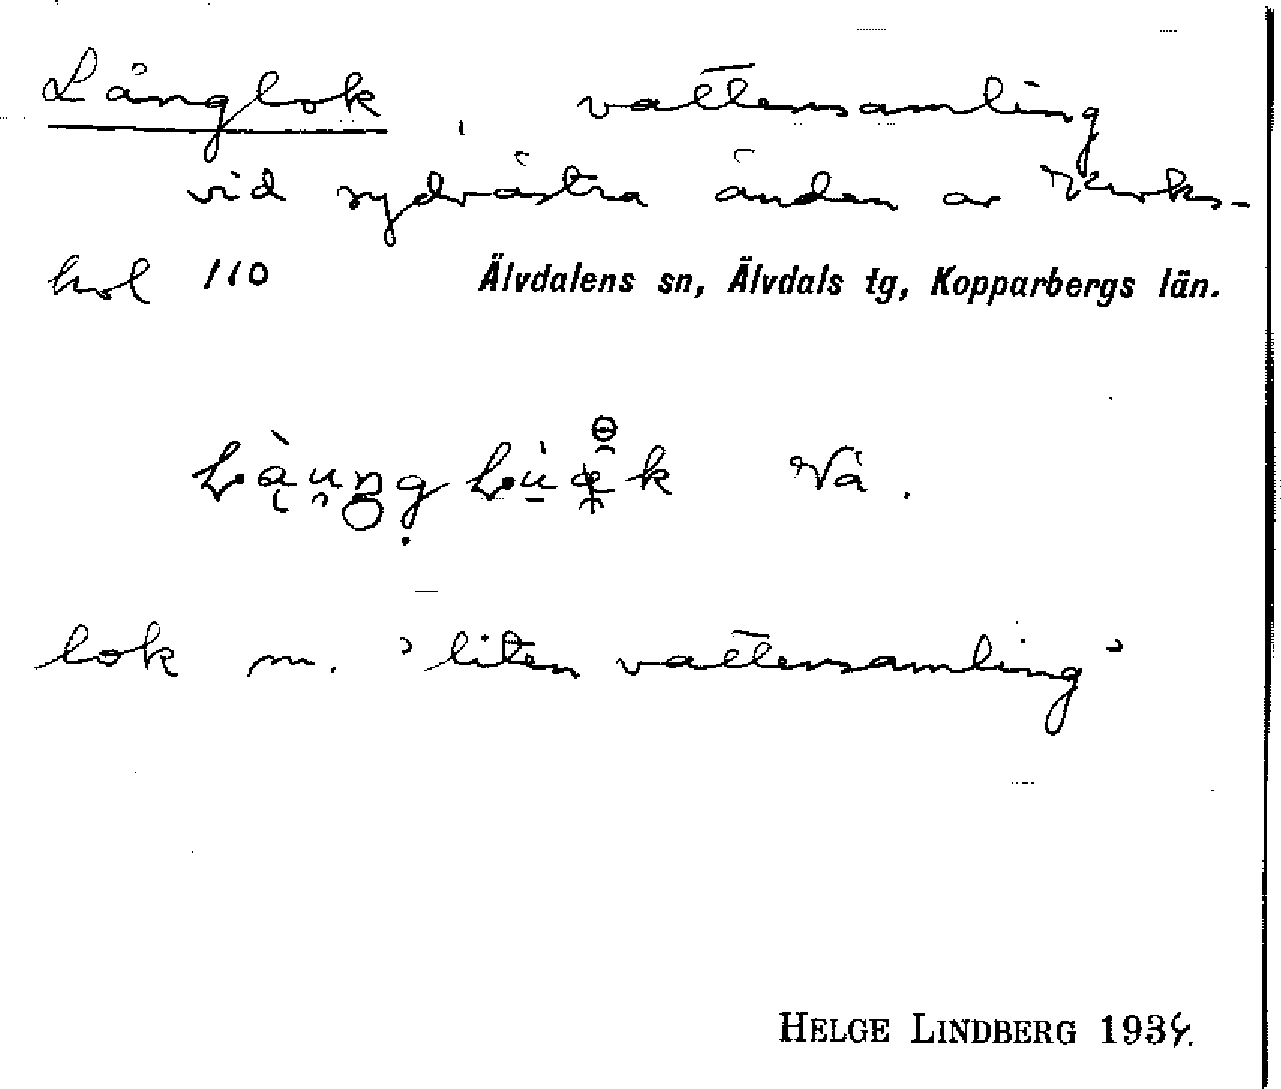 Långlok, vattensamling
vid sydvästra änden av
hol 110 Älvdalens sn, Älvdals tg, Kopparbergs län.
Vå.
lok m. 'liten vattensamling'
HELGE LINDBERG 1934.